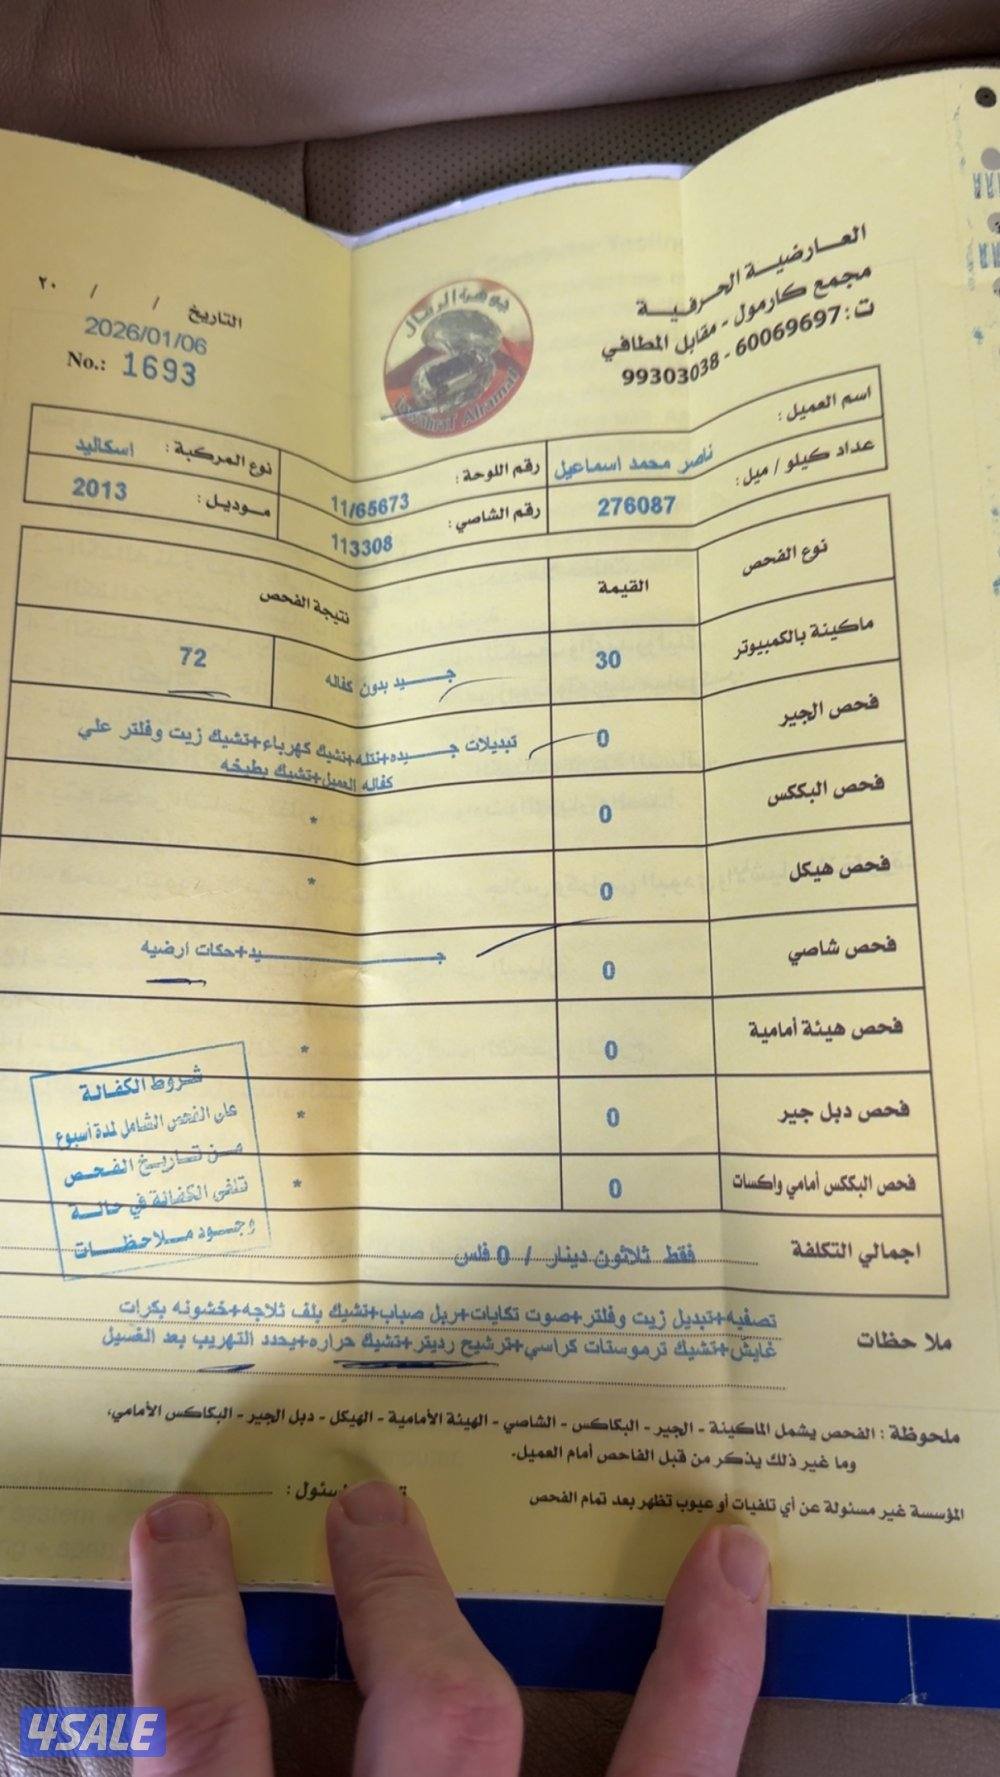 العارضية الحرفية
مجمع كارمول - مقابل المطافي
ت: 60069697 - 99303038
جوهرة الرمال
Jawharat Alramal
التاريخ / / ٢٠
2026/01/06
No.: 1693
اسم العميل: ناصر محمد اسماعيل
رقم اللوحة: 11/65673
نوع المركبة: اسكاليد
عداد كيلو / ميل: 276087
رقم الشاصي: 113308
موديل: 2013
نوع الفحص القيمة نتيجة الفحص
ماكينة بالكمبيوتر 30 جيد بدون كفاله 72
فحص الجير 0 تبديلات جيده+نتله+تشيك كهرباء+تشيك زيت وفلتر علي
كفاله العميل+تشيك بطيخه
فحص البككس 0 *
فحص هيكل 0 *
فحص شاصي 0 جيد+حكات ارضيه
فحص هيئة أمامية 0 *
فحص دبل جير 0 *
فحص البككس أمامي واكسات 0 *
اجمالي التكلفة فقط ثلاثون دينار / 0 فلس
شروط الكفالة
على الفحص الشامل لمدة أسبوع
من تاريخ الفحص
تلغى الكفالة في حالة
وجود ملاحظات
ملاحظات تصفيه+تبديل زيت وفلتر+صوت تكايات+ربل صباب+تشيك بلف ثلاجه+خشونه بكرات
غايش+تشيك ترموستات كراسي+ترشيح رديتر+تشيك حراره+يحدد التهريب بعد الغسيل
ملحوظة: الفحص يشمل الماكينة - الجير - البكاكس - الشاصي - الهيئة الأمامية - الهيكل - دبل الجير - البكاكس الأمامي،
وما غير ذلك يذكر من قبل الفاحص أمام العميل.
المؤسسة غير مسئولة عن أي تلفيات أو عيوب تظهر بعد تمام الفحص
4SALE